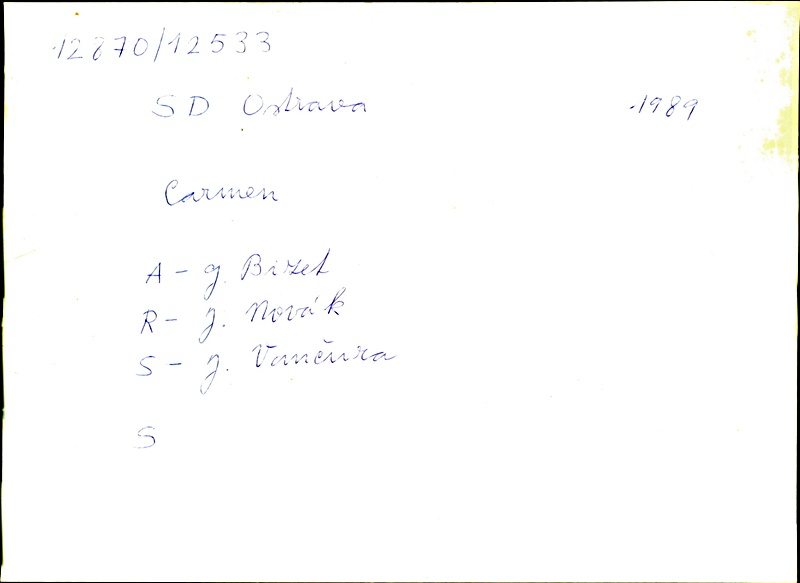 12870/12533
SD Ostrava
1989
Carmen
A - g. Bizet
R - J. Novák
S - J. Vančura
S